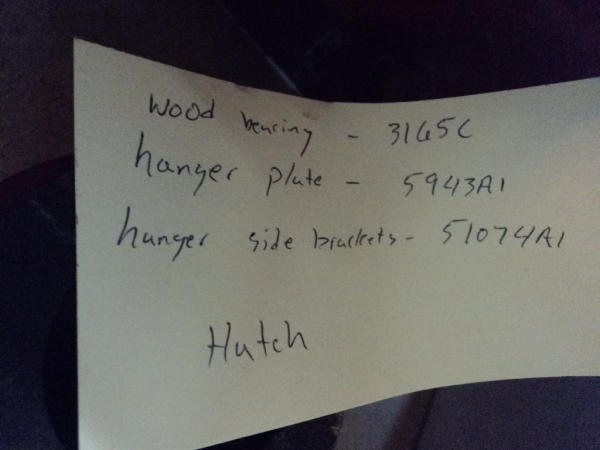 Wood bearing - 3165C
hanger plate - 5943A1
hanger side brackets- 51074A1
Hutch